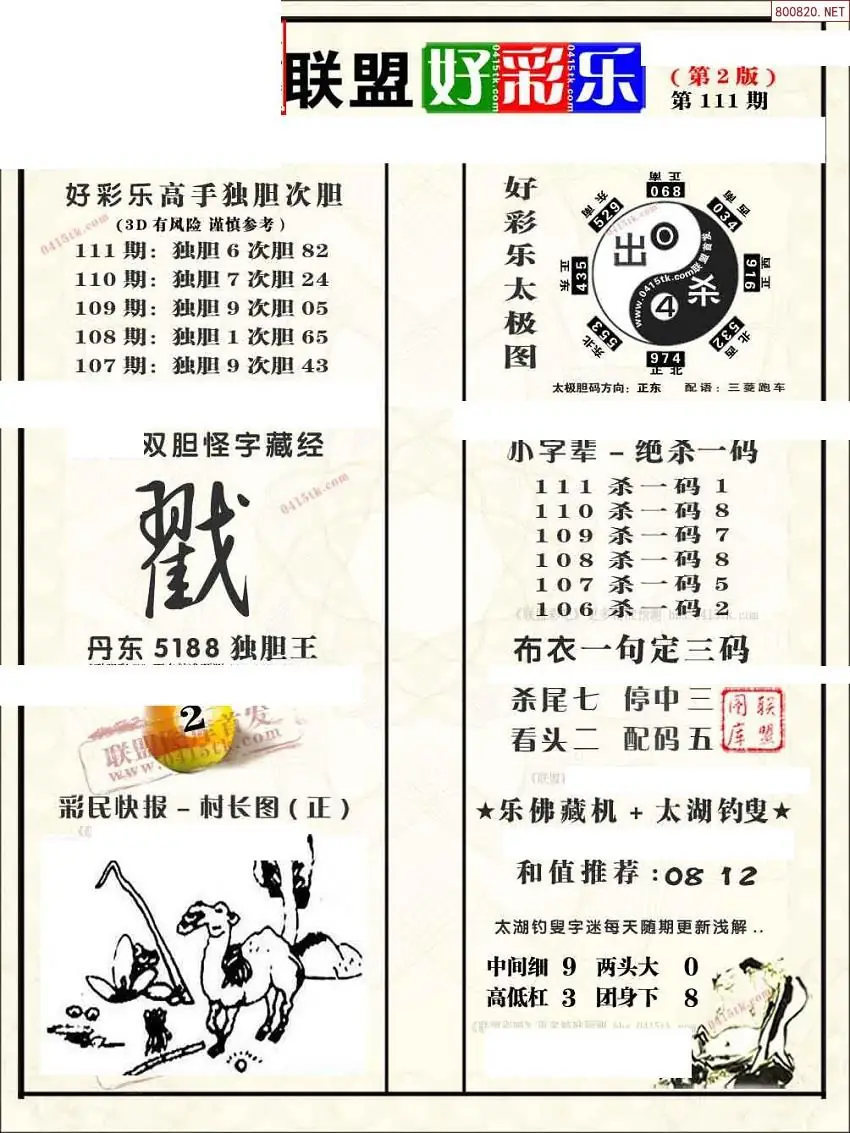 800820.NET
联盟好彩乐
(第2版)
第111期
好彩乐高手独胆次胆
(3D有风险 谨慎参考)
0415tk.com
111期: 独胆6次胆82
110期: 独胆7次胆24
109期: 独胆9次胆05
108期: 独胆1次胆65
107期: 独胆9次胆43
好彩乐太极图
正南
068
西南
034
正西
916
西北
532
正北
974
东北
553
正东
435
东南
529
出0
杀4
www.0415tk.com联盟首发
太极胆码方向: 正东 配语: 三菱跑车
双胆怪字藏经
戳
0415tk.com
丹东5188独胆王
2
www.0415tk.com
小字辈-绝杀一码
111杀一码1
110杀一码8
109杀一码7
108杀一码8
107杀一码5
106杀一码2
布衣一句定三码
杀尾七 停中三
看头二 配码五
联盟图库
(联盟)
彩民快报-村长图(正)
0415tk.com
★乐佛藏机+太湖钓叟★
和值推荐:08 12
太湖钓叟字迷每天随期更新浅解..
中间细 9 两头大 0
高低杠 3 团身下 8
0415tk.com